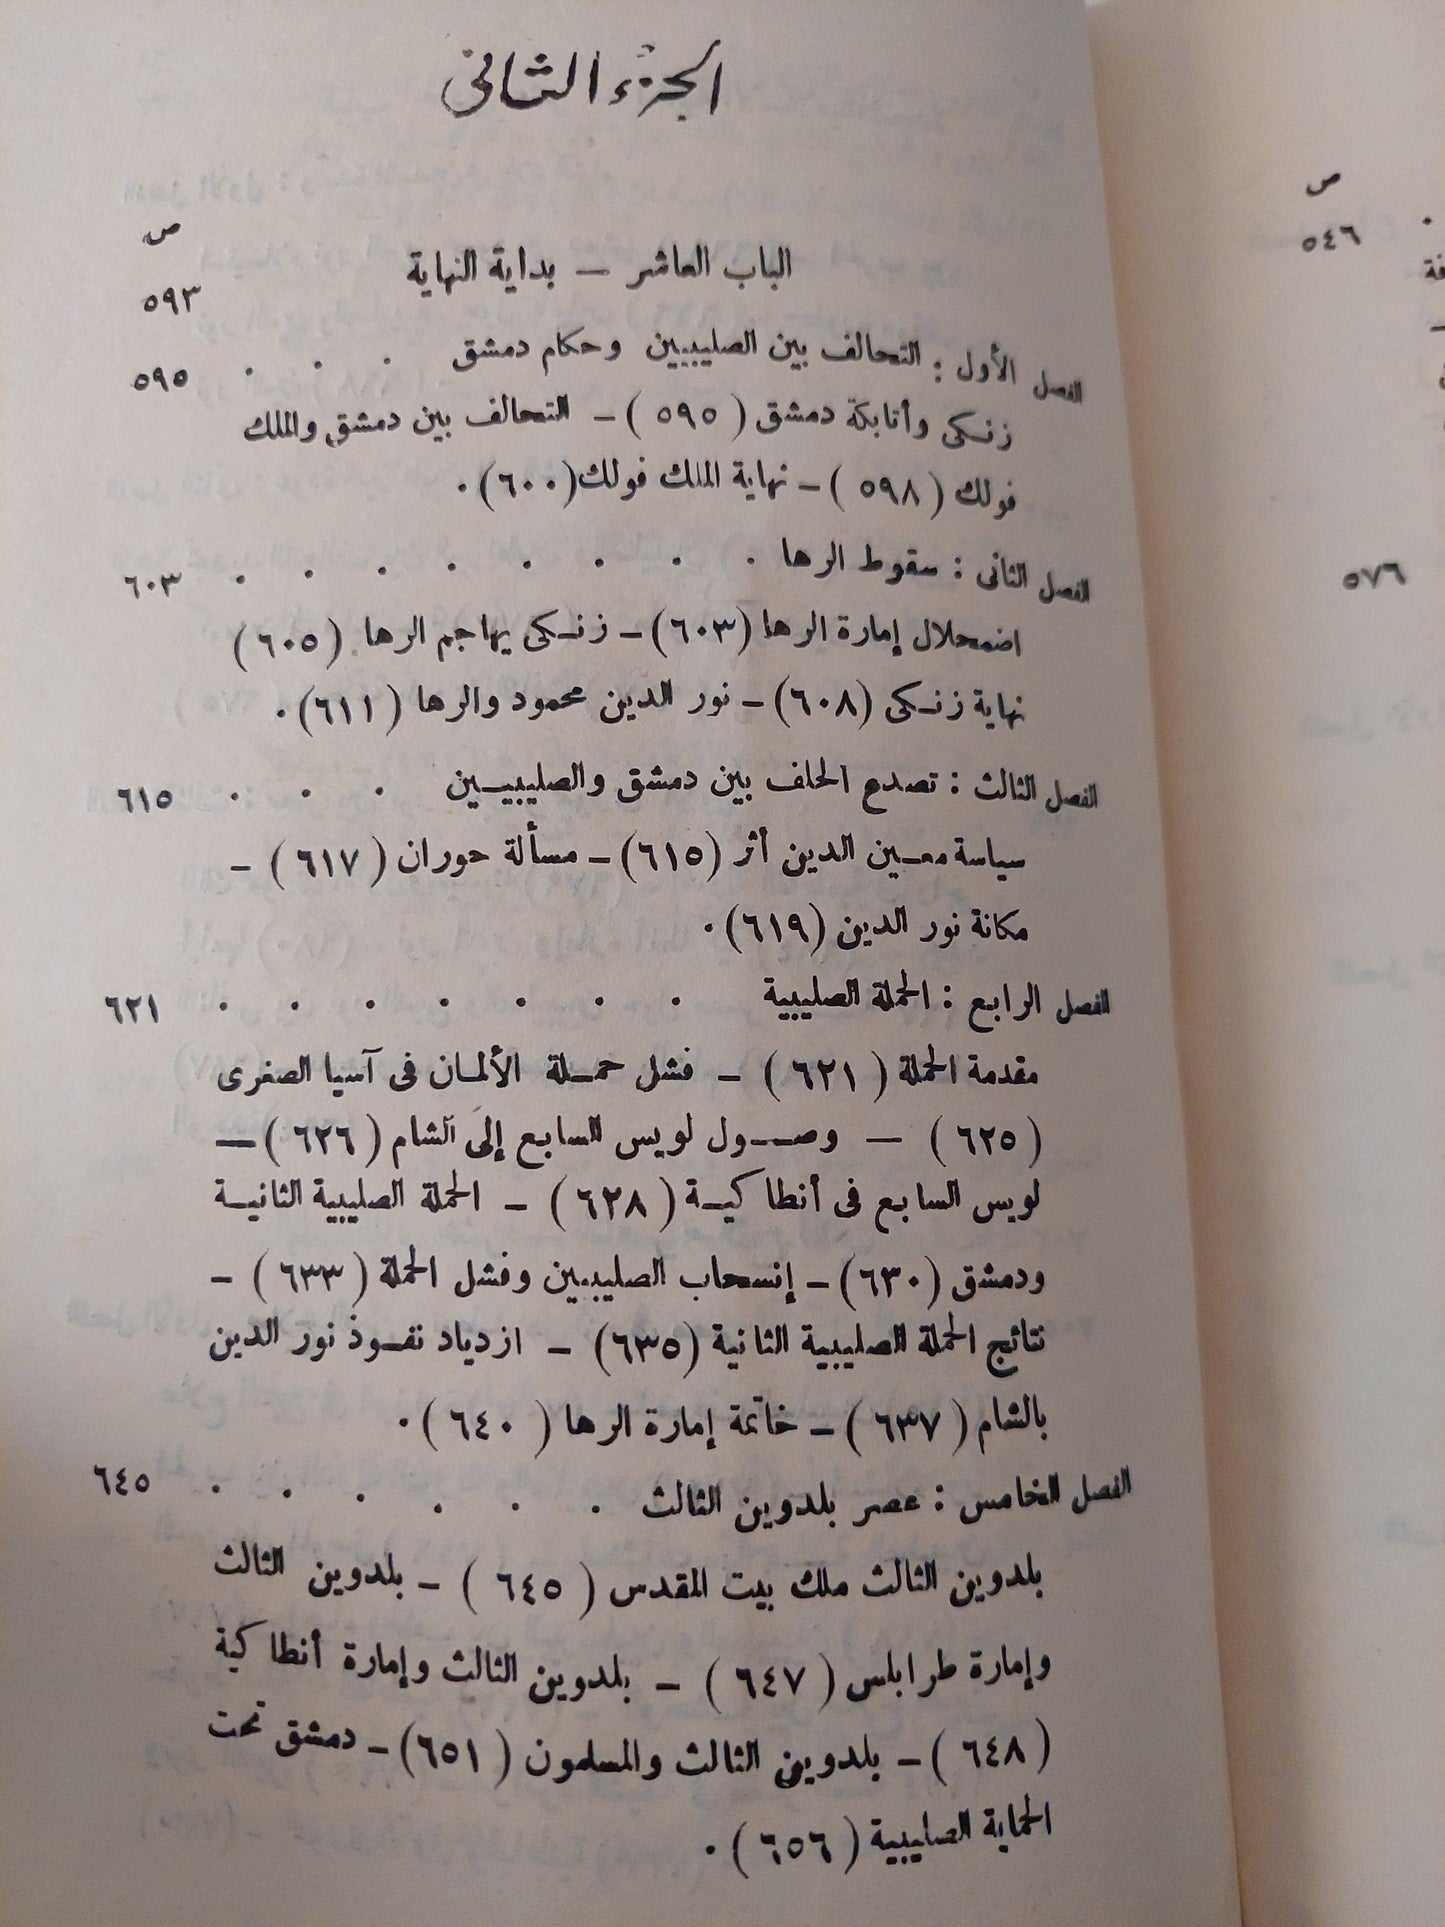 الجزء الثانى
ص
الباب العاشر — بداية النهاية ٥٩٣
الفصل الأول : التحالف بين الصليبيين وحكام دمشق . . . ٥٩٥
زنكى وأتابكة دمشق ( ٥٩٥ ) – التحالف بين دمشق والملك
فولك ( ٥٩٨ ) – نهاية الملك فولك (٦٠٠) .
الفصل الثانى : سقوط الرها . . . . . . . . ٦٠٣
اضمحلال إمارة الرها (٦٠٣) – زنكى يهاجم الرها (٦٠٥)
نهاية زنكى (٦٠٨) – نور الدين محمود والرها (٦١١) .
الفصل الثالث : تصدع الحلف بين دمشق والصليبيين . . . ٦١٥
سياسة معين الدين أثر (٦١٥) – مسألة حوران ( ٦١٧ ) –
مكانة نور الدين (٦١٩) .
الفصل الرابع : الحملة الصليبية . . . . . . . ٦٢١
مقدمة الحملة ( ٦٢١ ) – فشل حملة الألمان فى آسيا الصغرى
( ٦٢٥ ) — وصول لويس السابع إلى الشام ( ٦٢٦ ) —
لويس السابع فى أنطاكية ( ٦٢٨ ) – الحملة الصليبية الثانية
ودمشق (٦٣٠) – إنسحاب الصليبيين وفشل الحملة ( ٦٣٣ ) –
نتائج الحملة الصليبية الثانية (٦٣٥) – ازدياد نفوذ نور الدين
بالشام ( ٦٣٧ ) – خاتمة إمارة الرها ( ٦٤٠ ) .
الفصل الخامس : عصر بلدوين الثالث . . . . . . ٦٤٥
بلدوين الثالث ملك بيت المقدس ( ٦٤٥ ) – بلدوين الثالث
وإمارة طرابلس ( ٦٤٧ ) – بلدوين الثالث وإمارة أنطاكية
( ٦٤٨ ) – بلدوين الثالث والمسلمون ( ٦٥١ ) – دمشق تحت
الحماية الصليبية ( ٦٥٦ ) .
ص
٥٤٦
٥٧٦